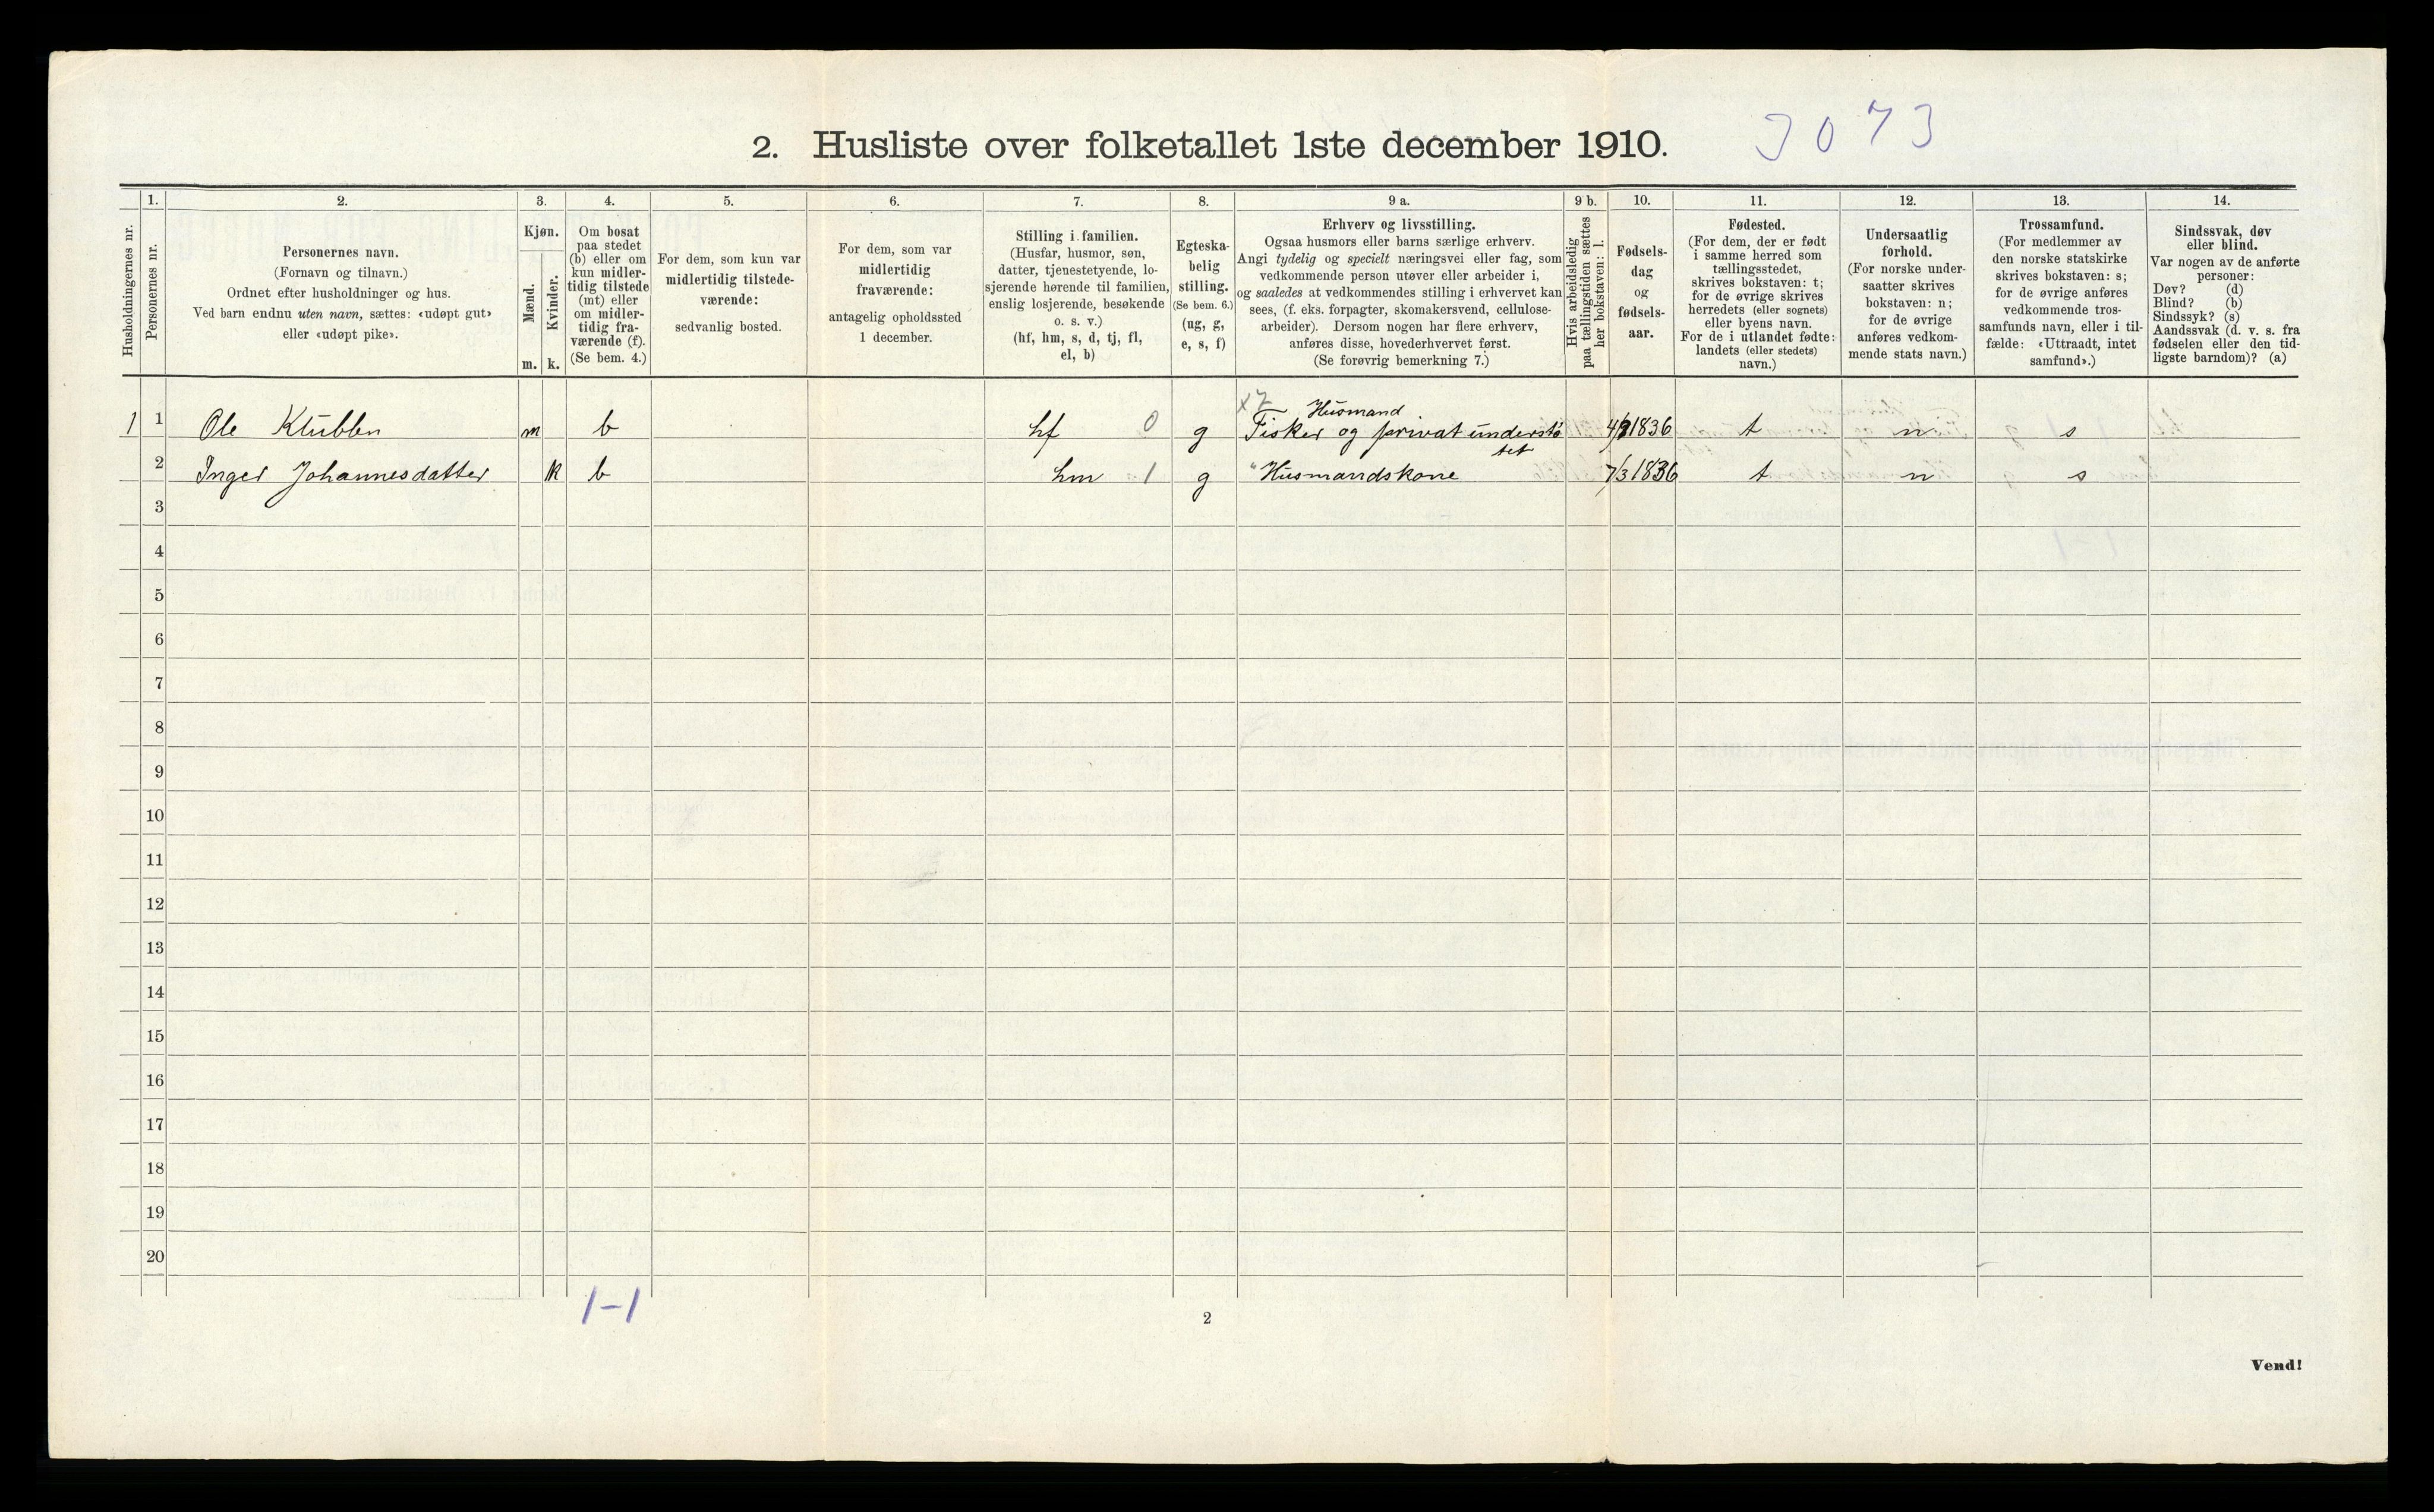 2. Husliste over folketallet 1ste december 1910.
3073
Husholdningernes nr.
1.
Personernes nr.
2.
Personernes navn.
(Fornavn og tilnavn.)
Ordnet efter husholdninger og hus.
Ved barn endnu uten navn, sættes: «udøpt gut»
eller «udøpt pike».
3.
Kjøn.
Mænd.
Kvinder.
m. k.
4.
Om bosat
paa stedet
(b) eller om
kun midler-
tidig tilstede
(mt) eller
om midler-
tidig fra-
værende (f).
(Se bem. 4.)
5.
For dem, som kun var
midlertidig tilstede-
værende:
sedvanlig bosted.
6.
For dem, som var
midlertidig
fraværende:
antagelig opholdssted
1 december.
7.
Stilling i familien.
(Husfar, husmor, søn,
datter, tjenestetyende, lo-
sjerende hørende til familien,
enslig losjerende, besøkende
o. s. v.)
(hf, hm, s, d, tj, fl,
el, b)
8.
Egteska-
belig
stilling.
(Se bem. 6.)
(ug, g,
e, s, f)
9 a.
Erhverv og livsstilling.
Ogsaa husmors eller barns særlige erhverv.
Angi tydelig og specielt næringsvei eller fag, som
vedkommende person utøver eller arbeider i,
og saaledes at vedkommendes stilling i erhvervet kan
sees, (f. eks. forpagter, skomakersvend, cellulose-
arbeider). Dersom nogen har flere erhverv,
anføres disse, hovederhvervet først.
(Se forøvrig bemerkning 7.)
9 b.
Hvis arbeidsledig
paa tællingstiden sættes
her bokstaven: l.
10.
Fødsels-
dag
og
fødsels-
aar.
11.
Fødested.
(For dem, der er født
i samme herred som
tællingsstedet,
skrives bokstaven: t;
for de øvrige skrives
herredets (eller sognets)
eller byens navn.
For de i utlandet fødte:
landets (eller stedets)
navn.)
12.
Undersaatlig
forhold.
(For norske under-
saatter skrives
bokstaven: n;
for de øvrige
anføres vedkom-
mende stats navn.)
13.
Trossamfund.
(For medlemmer av
den norske statskirke
skrives bokstaven: s;
for de øvrige anføres
vedkommende tros-
samfunds navn, eller i til-
fælde: «Uttraadt, intet
samfund».)
14.
Sindssvak, døv
eller blind.
Var nogen av de anførte
personer:
Døv? (d)
Blind? (b)
Sindssyk? (s)
Aandssvak (d. v. s. fra
fødselen eller den tid-
ligste barndom)? (a)
x7 Husmand
1 1 Ole Klubben m b hf 0 g Fisker og privat understø 1836 t n s
tet
2 Inger Johannesdatter k b hm 1 g "Husmandskone 7/3 1836 t n s
3
4
5
6
7
8
9
10
11
12
13
14
15
16
17
18
19
20
1-1
2
Vend!